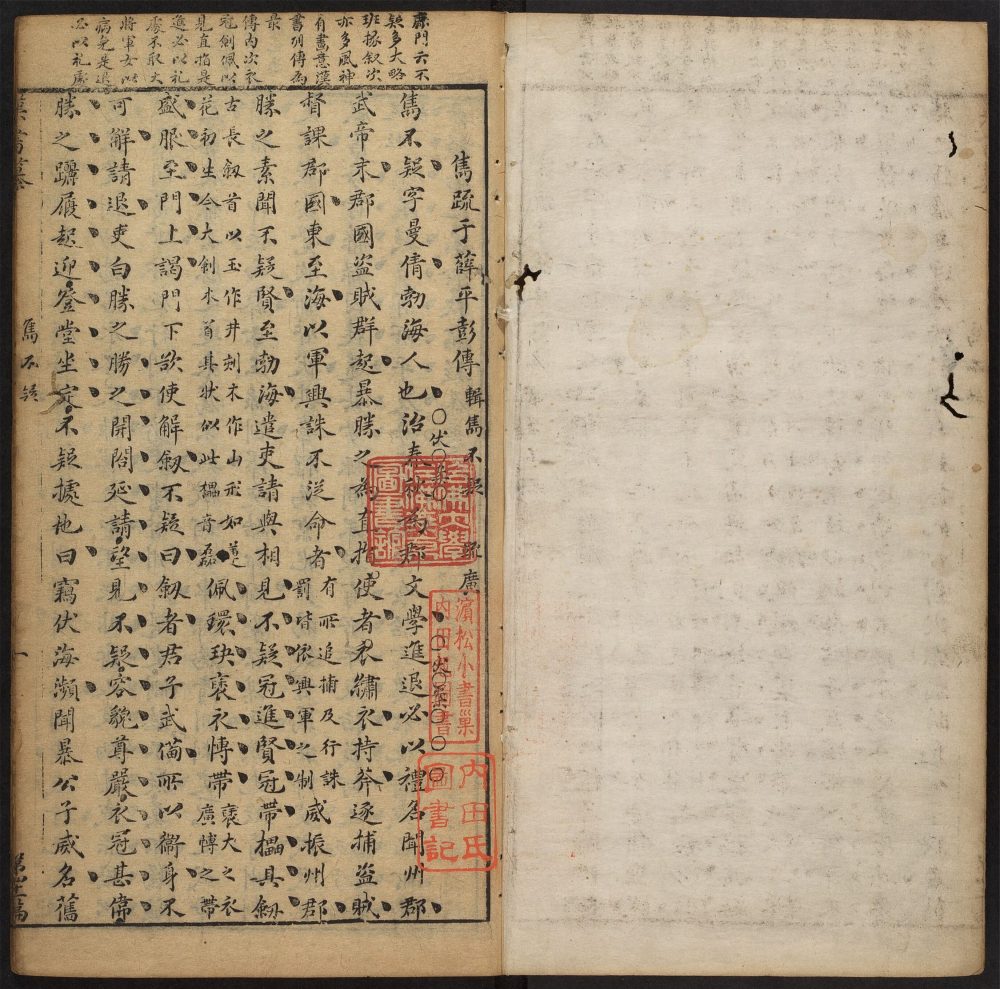 鹿門云不
疑多大略
班掾叙次
亦多風神
有畫意漢
書列傳為
最
傳內次衣
冠劍佩以
見直指是
進必以礼
處不取大
將軍女以
病免是退
必以礼處
雋疏于薛平彭傳 輯雋不疑 疏廣
雋不疑字曼倩勃海人也治春秋為郡文學進退必以禮名聞州郡
武帝末郡國盜賊群起暴勝之為直指使者衣繡衣持斧逐捕盜賊
督課郡國東至海以軍興誅不從命者有所追捕及行誅罰皆依興軍之制威振州郡
勝之素聞不疑賢至勃海遣吏請與相見不疑冠進賢冠帶櫑具劒
古長劒首以玉作井刻木作山形如蓮花初生今大劍木首其狀似此櫑音磊佩環玦裒衣博帶裒大之衣廣博之帶
盛服至門上謁門下欲使解劒不疑曰劒者君子武備所以衞身不
可解請退吏白勝之勝之開閤延請望見不疑容貌尊嚴衣冠甚偉
勝之躧履起迎登堂坐定不疑據地曰竊伏海瀕聞暴公子威名舊
雋不疑
一
濱松小書巢
內田氏
圖書記